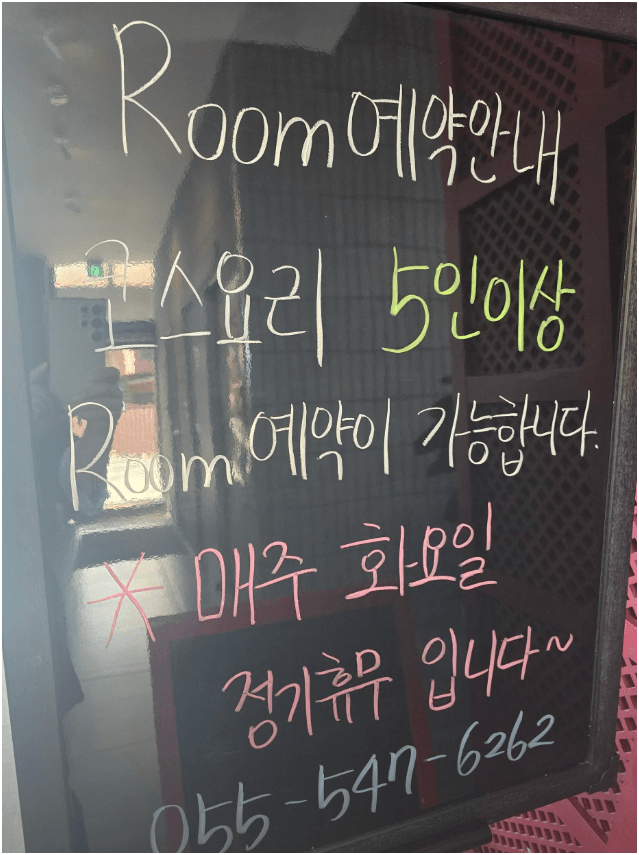 Room 예약안내
코스요리 5인이상
Room 예약이 가능합니다.
* 매주 화요일
정기휴무 입니다~
055-547-6262